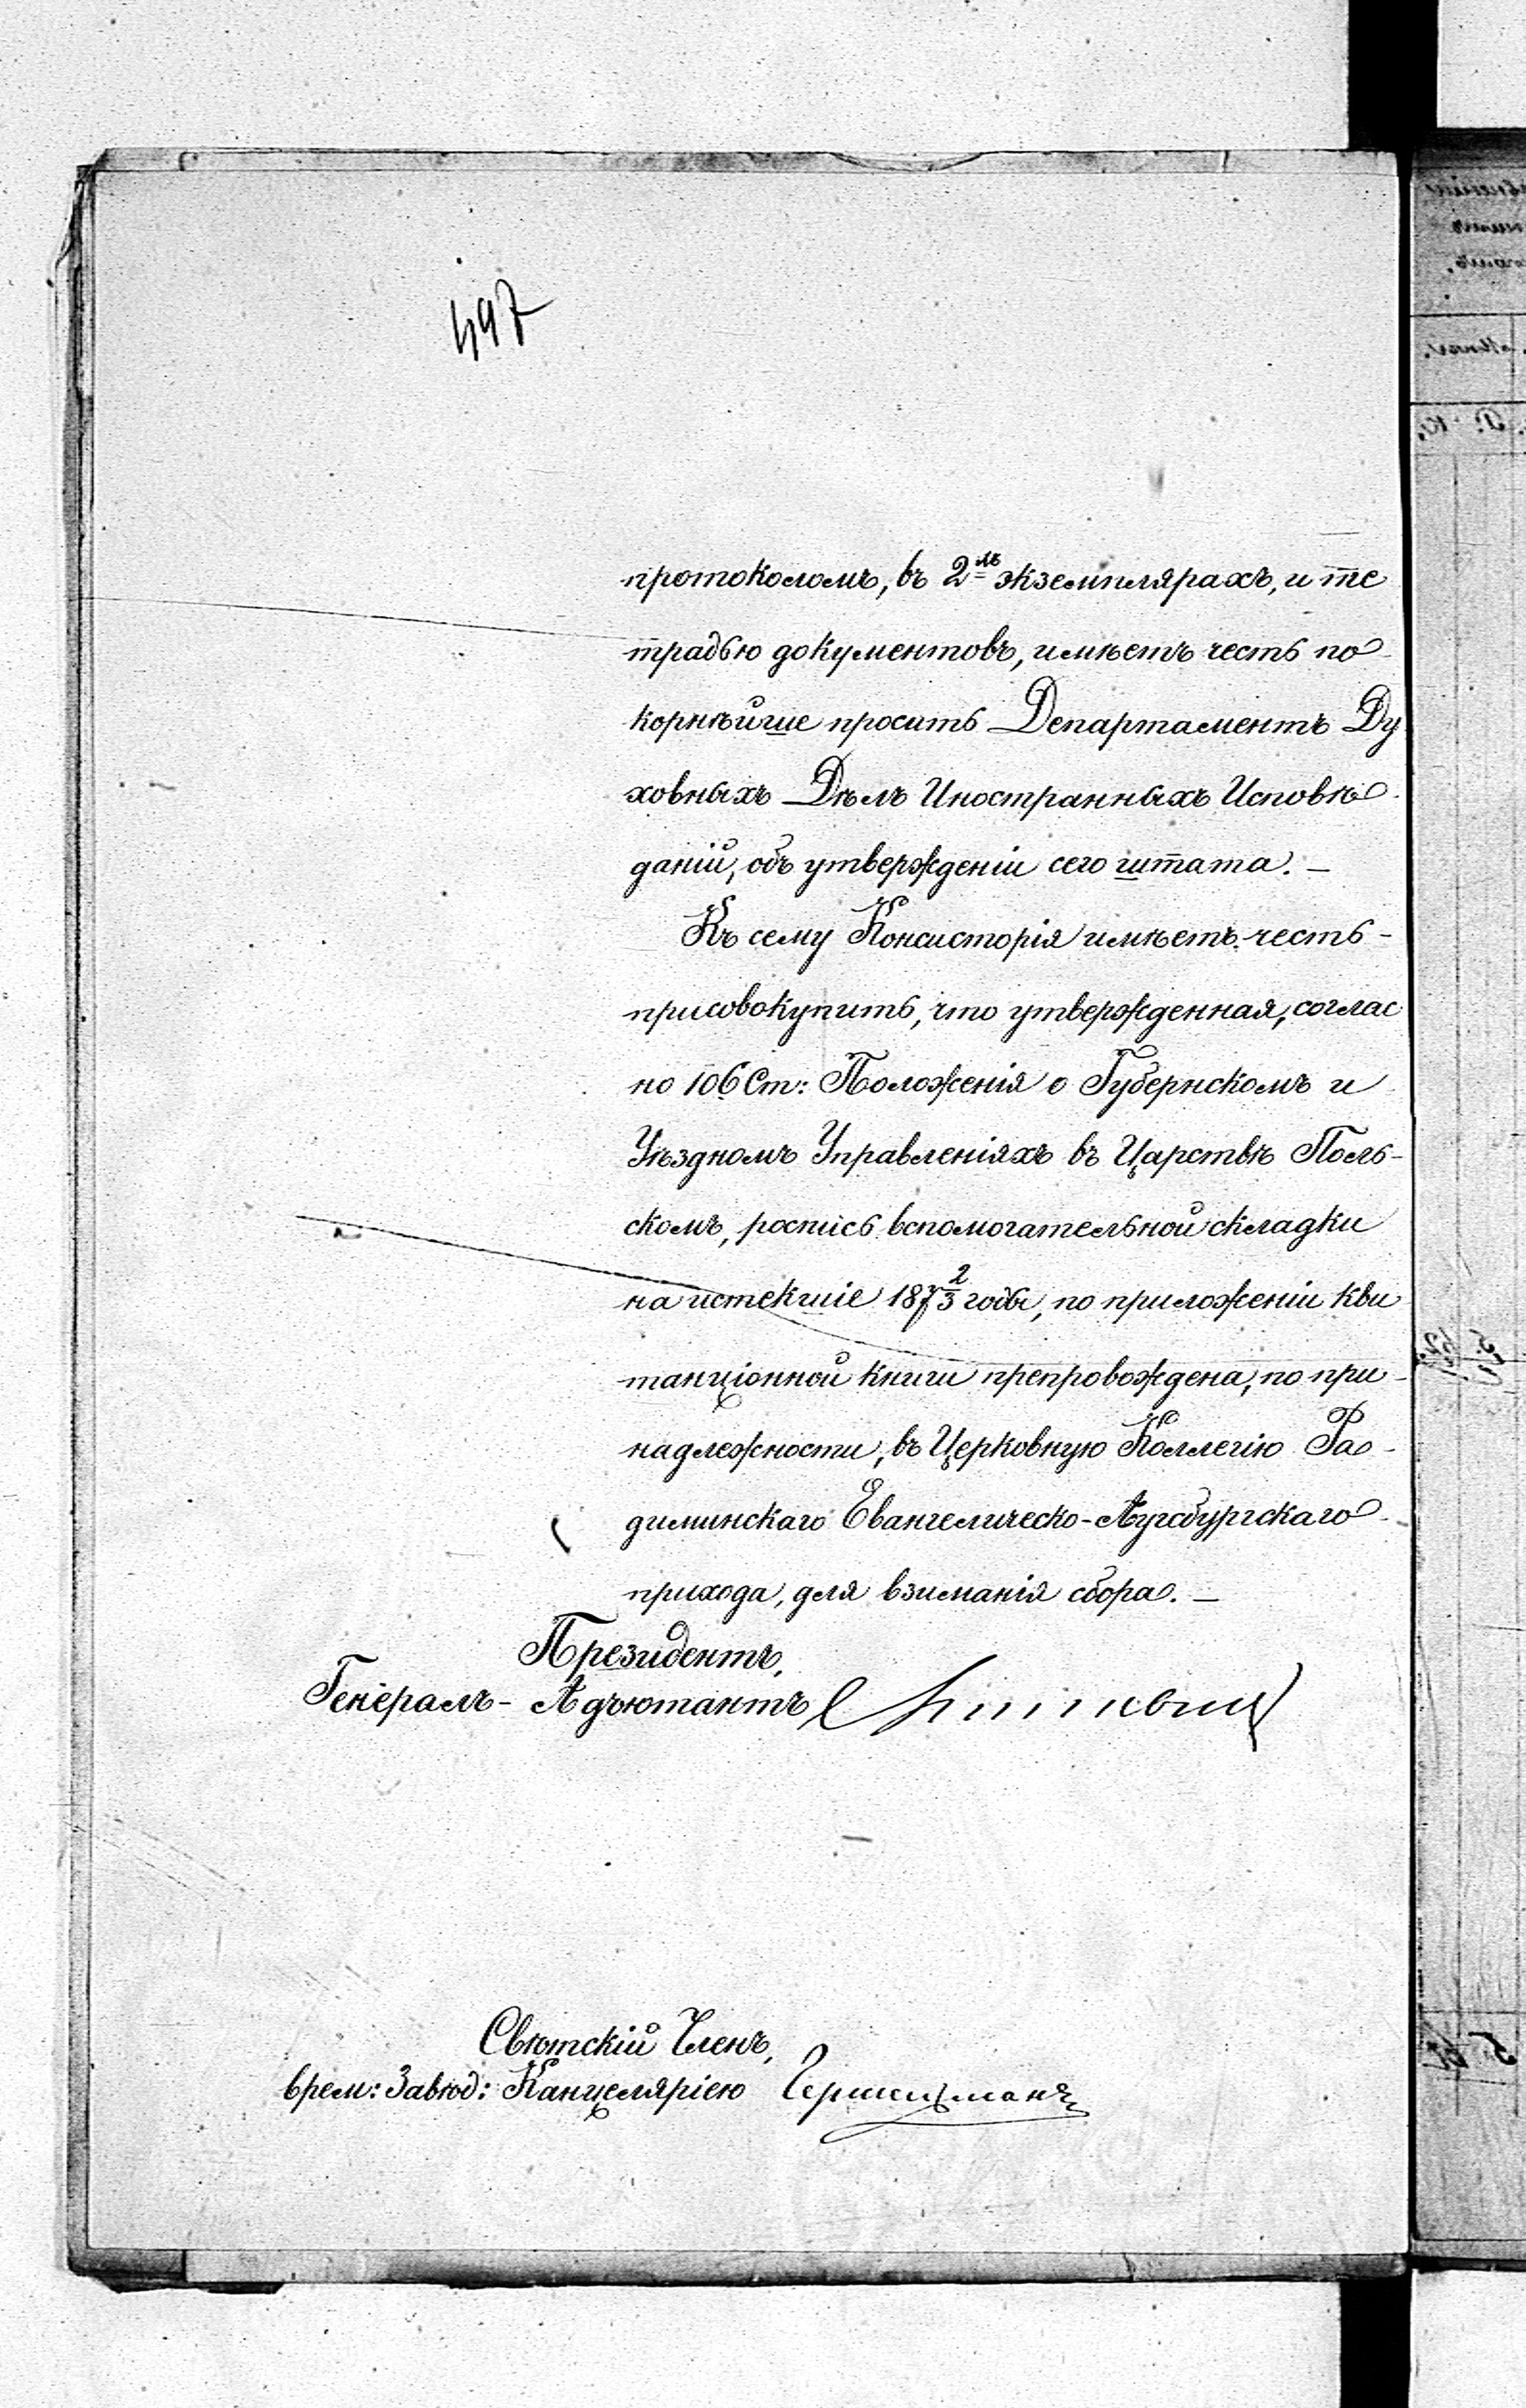 497
протоколомъ, въ 2хъ экземплярахъ, и те
традью документовъ, имѣетъ честь по
корнѣйше просить Департаментъ Ду
ховныхъ Дѣлъ Иностранныхъ Исповѣ
даній, объ утвержденіи сего штата. —
Къ сему Консисторія имѣетъ честь -
присовокупить, что утвержденная, соглас
но 106 Ст: Положенія о Губернскомъ и
Уѣздномъ Управленіяхъ въ Царствѣ Поль-
скомъ, роспись вспомогательной складки
на истекшіе 187 2/3 годы, по приложеніи кви
танціонной книги препровождена, по при-
надлежности, въ Церковную Коллегію Ра-
диминскаго Евангелическо-Аугсбургскаго
прихода, для взиманія сбора. —
Президентъ,
Генералъ-Адъютантъ
Свѣтскій Членъ,
врем: Завѣд: Канцеляріею